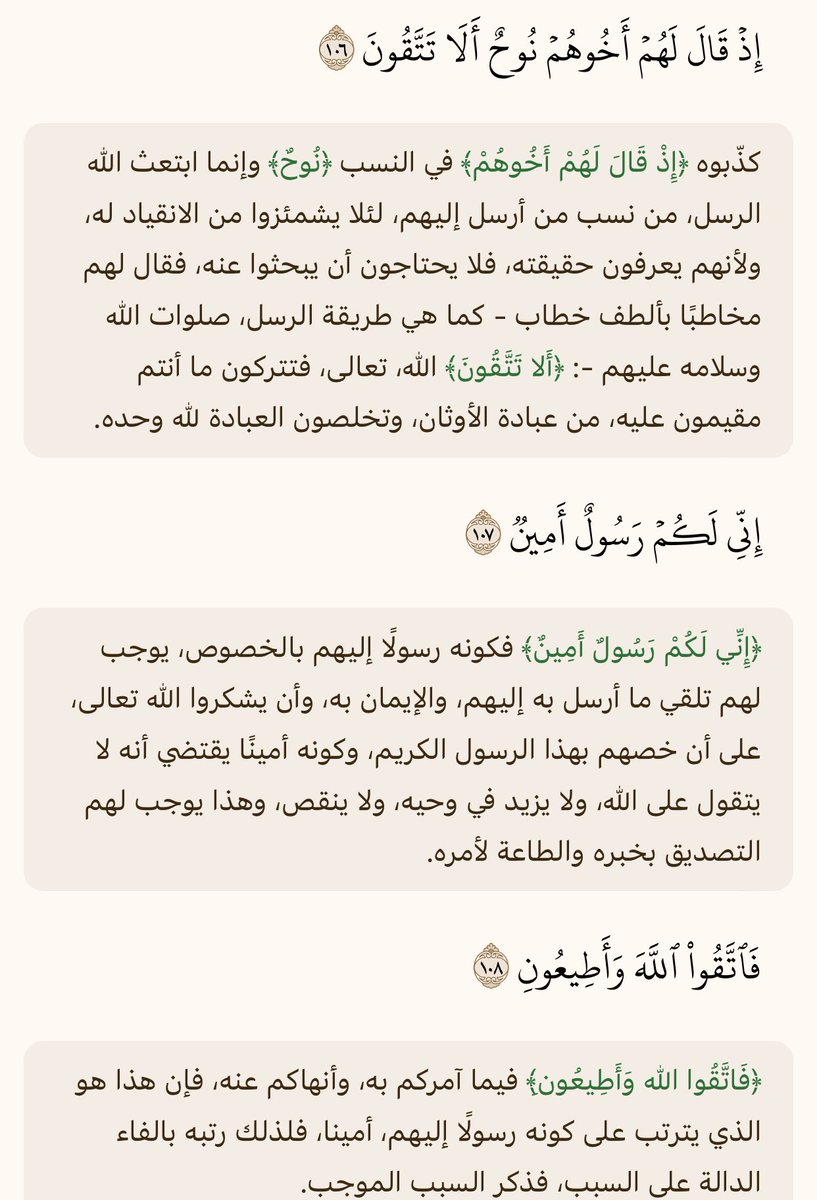 إِذْ قَالَ لَهُمْ أَخُوهُمْ نُوحٌ أَلَا تَتَّقُونَ ١٠٦
كذّبوه ﴿إِذْ قَالَ لَهُمْ أَخُوهُمْ﴾ في النسب ﴿نُوحٌ﴾ وإنما ابتعث الله
الرسل، من نسب من أرسل إليهم، لئلا يشمئزوا من الانقياد له،
ولأنهم يعرفون حقيقته، فلا يحتاجون أن يبحثوا عنه، فقال لهم
مخاطبًا بألطف خطاب - كما هي طريقة الرسل، صلوات الله
وسلامه عليهم -: ﴿أَلا تَتَّقُونَ﴾ الله، تعالى، فتتركون ما أنتم
مقيمون عليه، من عبادة الأوثان، وتخلصون العبادة لله وحده.
إِنِّي لَكُمْ رَسُولٌ أَمِينٌ ١٠٧
﴿إِنِّي لَكُمْ رَسُولٌ أَمِينٌ﴾ فكونه رسولًا إليهم بالخصوص، يوجب
لهم تلقي ما أرسل به إليهم، والإيمان به، وأن يشكروا الله تعالى،
على أن خصهم بهذا الرسول الكريم، وكونه أمينًا يقتضي أنه لا
يتقول على الله، ولا يزيد في وحيه، ولا ينقص، وهذا يوجب لهم
التصديق بخبره والطاعة لأمره.
فَٱتَّقُوا۟ ٱللَّهَ وَأَطِيعُونِ ١٠٨
﴿فَاتَّقُوا الله وَأَطِيعُونِ﴾ فيما آمركم به، وأنهاكم عنه، فإن هذا هو
الذي يترتب على كونه رسولًا إليهم، أمينا، فلذلك رتبه بالفاء
الدالة على السبب، فذكر السبب الموجب.